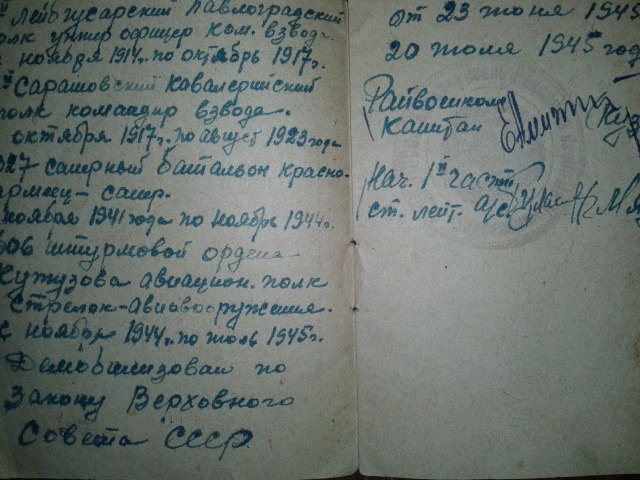 Лейбгусарский Павлоградский
полк унтер офицер ком. взвода
с ноября 1914г. по октябрь 1917г.
Сарашовский кавалерийский
полк командир взвода.
октября 1917г. по август 1923 года
927 саперный батальон красно-
армеец - сапер.
ноября 1941 года по ноябрь 1944г.
606 штурмовой ордена
Кутузова авиацион. полк
стрелок-авиавооружения.
с ноября 1944г. по июль 1945г.
Демобилизован по
Закону Верховного
Совета СССР.
от 23 июня 1945
20 июля 1945 год
Райвоенком
Капитан
Нач. 1й части
ст. лейт.